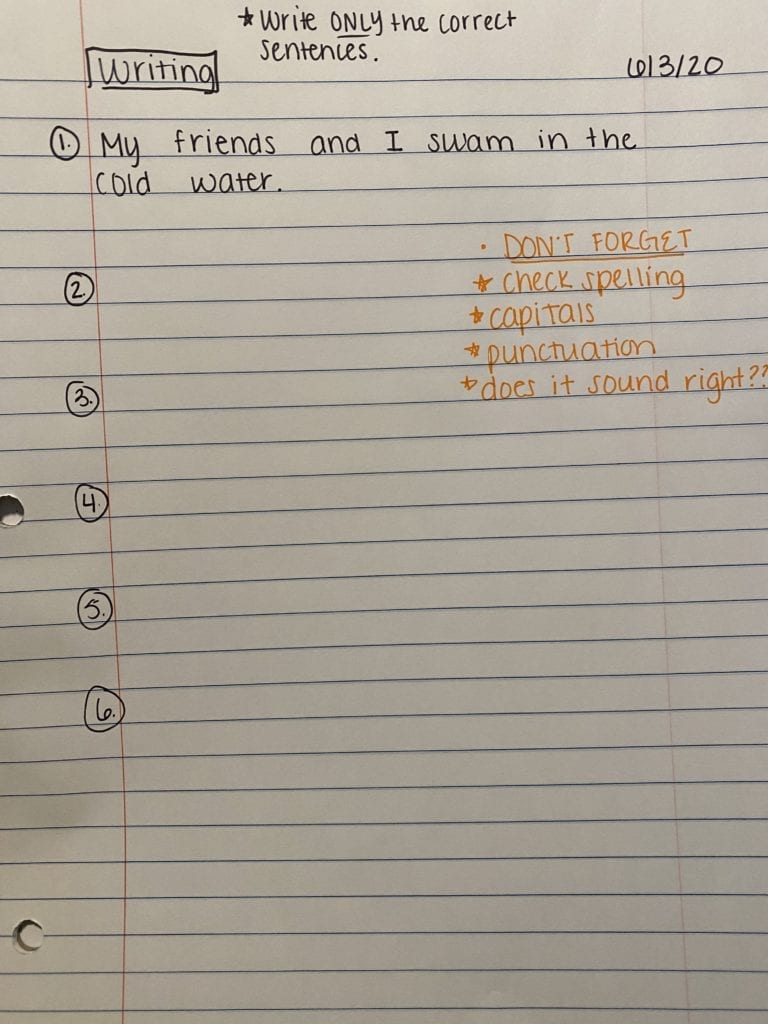 ★ Write ONLY the correct
sentences.
Writing
6/3/20
1. My friends and I swam in the
cold water.
• DON'T FORGET
★ check spelling
★ capitals
★ punctuation
★ does it sound right??
2.
3.
4.
5.
6.